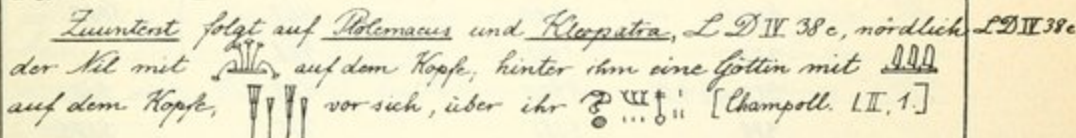 Zuunterst folgt auf Ptolemaeus und Kleopatra, L D IV 38c, nördlich LD IV 38c
der Nil mit auf dem Kopfe, hinter ihm eine Göttin mit
auf dem Kopfe, vor sich, über ihr [Champoll.